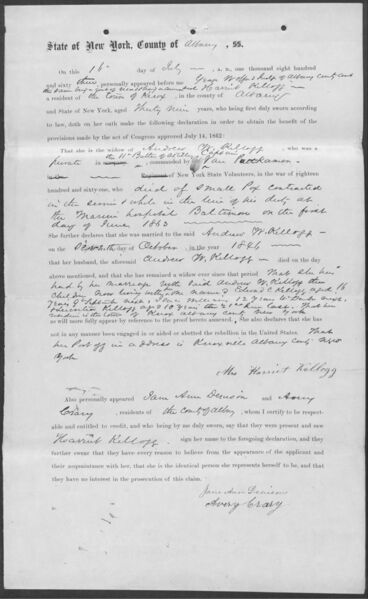 State of New York, County of Albany, SS.
On this 16 day of July A.D., one thousand eight hundred
and sixty three, personally appeared before me
Harriet Kellogg
a resident of the town of Knox in the county of Albany
and State of New York, aged Thirty Nine years, who being first duly sworn according
to law, doth on her oath make the following declaration in order to obtain the benefit of the
provisions made by the act of Congress approved July 14, 1862:
That she is the widow of Andrew W. Kellogg, who was a
private in the 11th commanded by
Regiment of New York State Volunteers, in the war of eighteen
hundred and sixty-one, who died of Small Pox contracted
in the service & while in the line of his duty at
the Marine hospital Baltimore on the first
day of June 1863
She further declares that she was married to the said Andrew W. Kellogg
on the day of October in the year 1846
that her husband, the aforesaid Andrew W. Kellogg died on the day
above mentioned, and that she has remained a widow ever since that period That she has
had by her marriage with said Andrew W. Kellogg three
Children now living aged 16
of Knox Albany county New York
as will more fully appear by reference to the proof hereto annexed. She also declares that she has
not in any manner been engaged in or aided or abetted the rebellion in the United States. That
her Post office address is Knoxville Albany County New
York
Mrs Harriet Kellogg
Also personally appeared Jane Ann Denison and Avery
Crary, residents of the County of Albany, whom I certify to be respect-
able and entitled to credit, and who being by me duly sworn, say that they were present and saw
Harriet Kellogg sign her name to the foregoing declaration, and they
further swear that they have every reason to believe from the appearance of the applicant and
their acquaintance with her, that she is the identical person she represents herself to be, and that
they have no interest in the prosecution of this claim.
Jane Ann Denison
Avery Crary